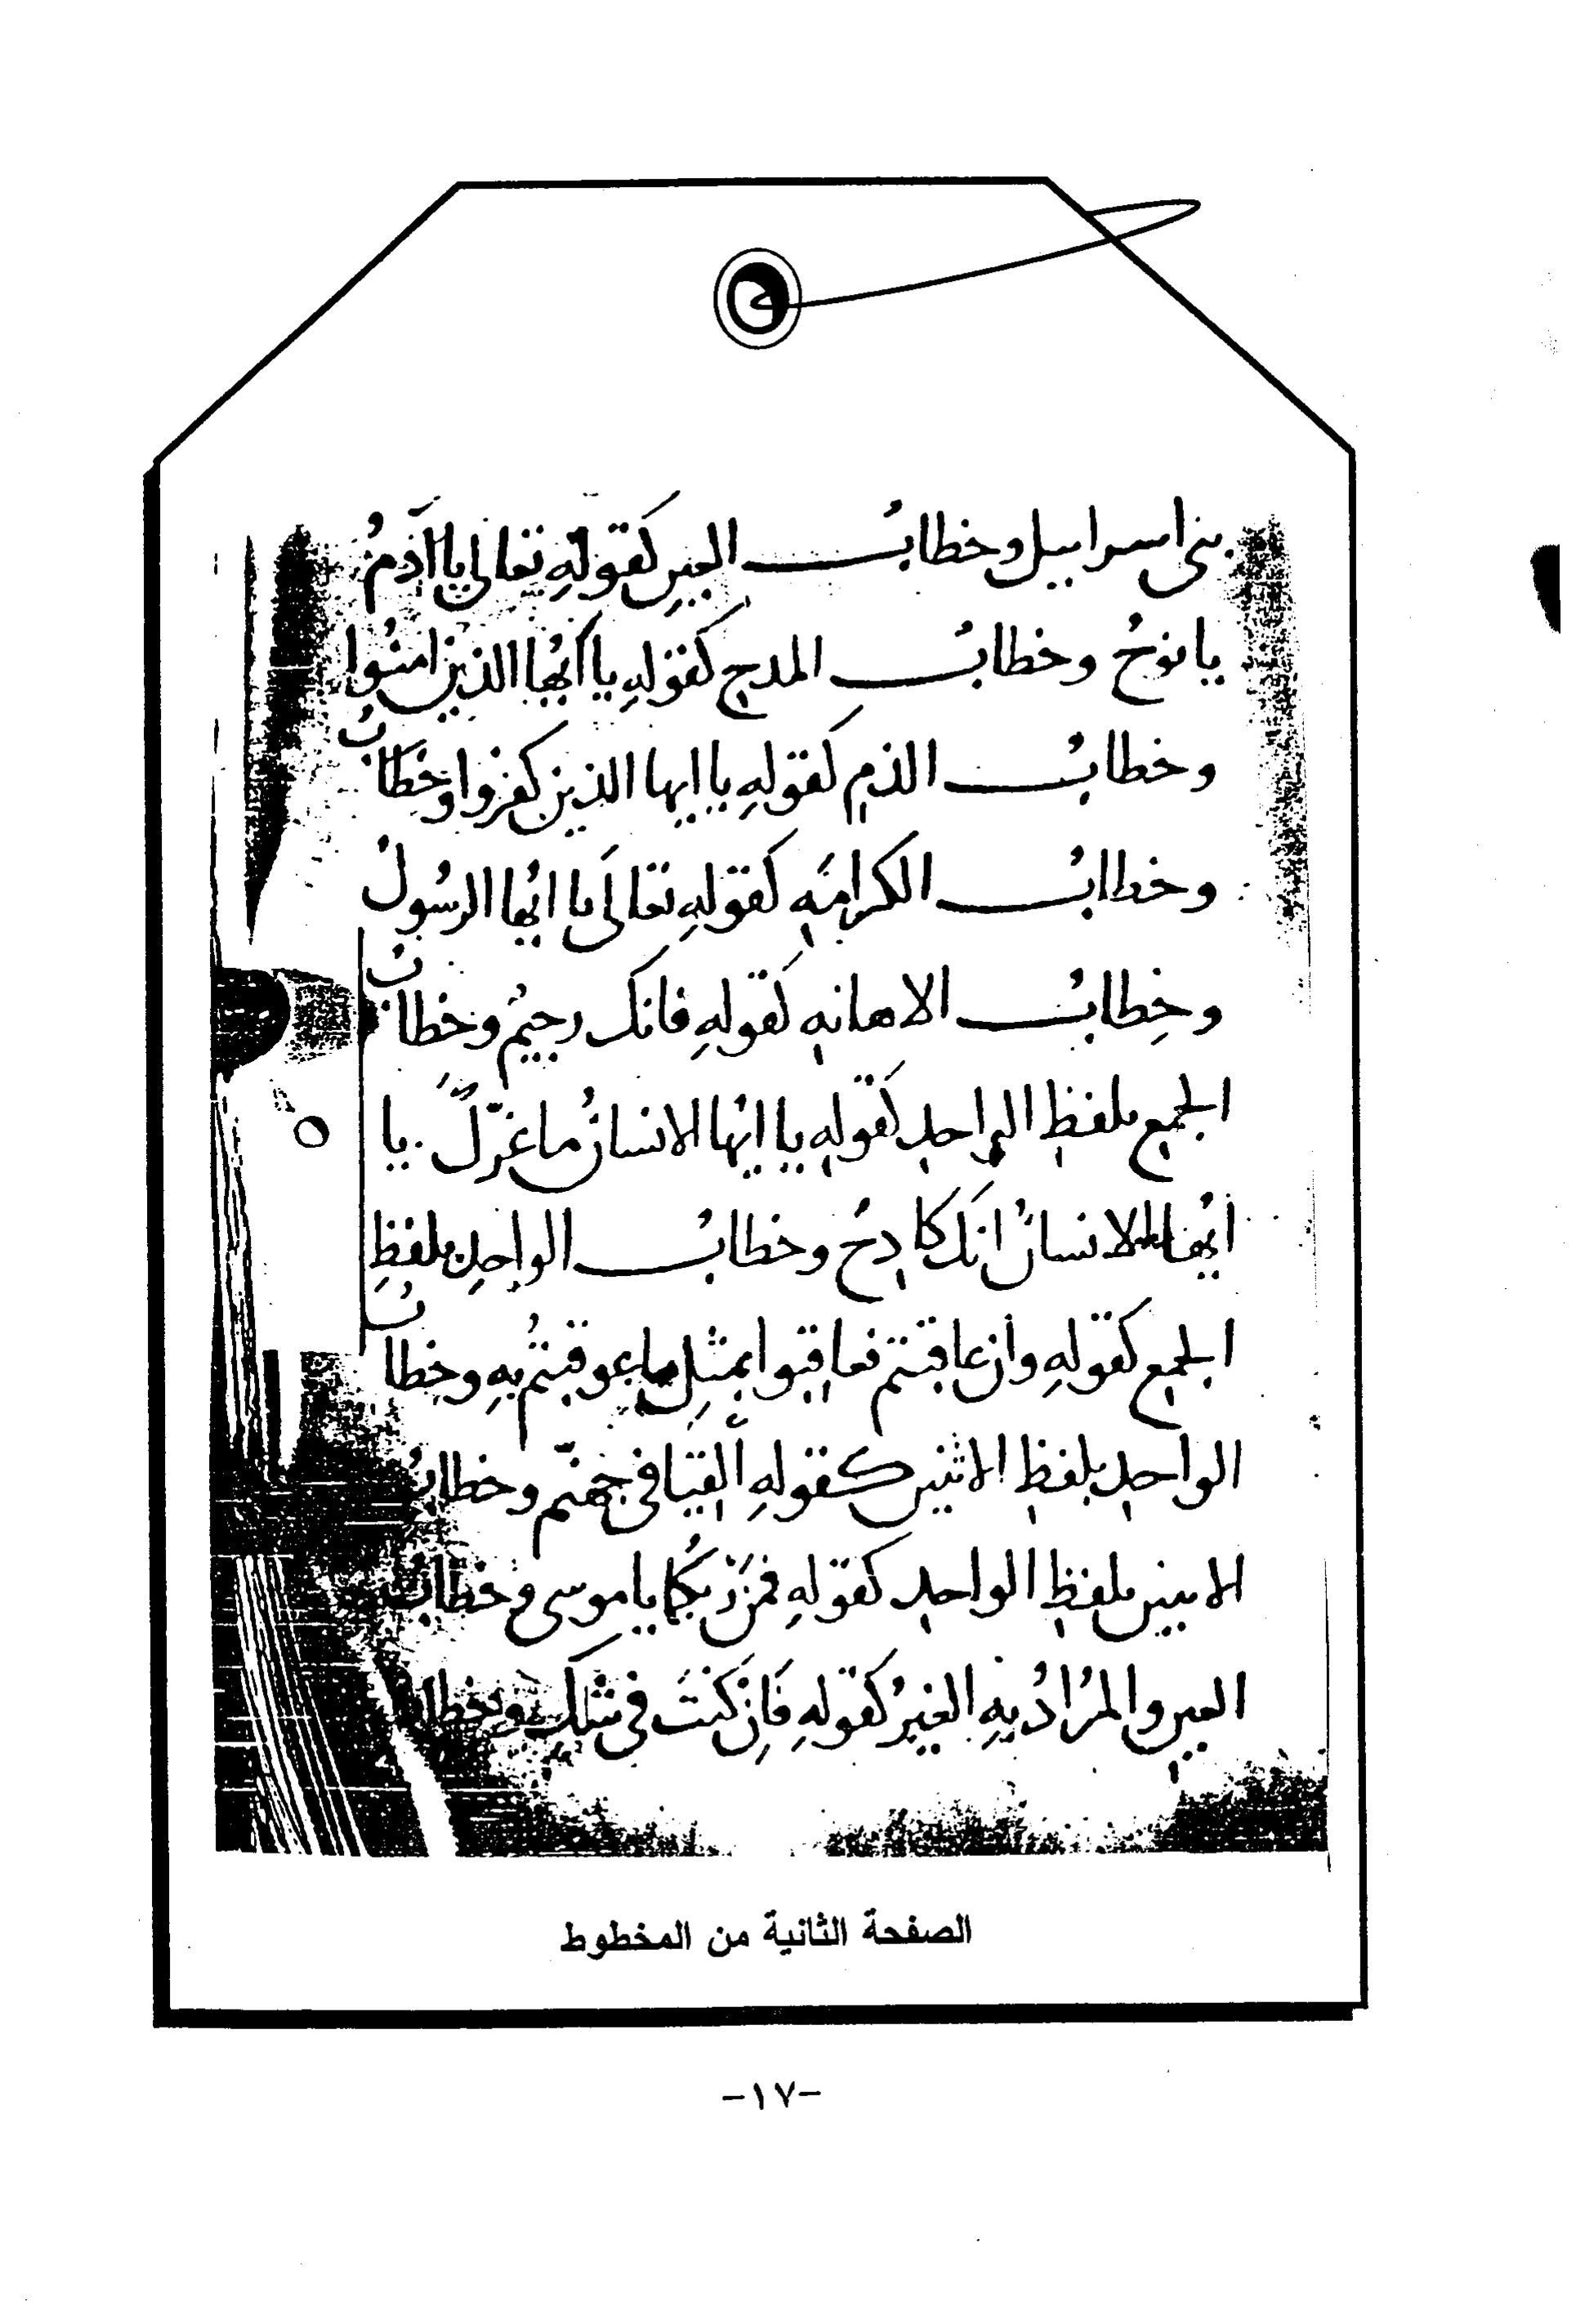 بنى اسراييل وخطابُ العينِ كَقولِهِ تعالى يا آدَمُ
يا نوحُ وخطابُ المدحِ كقولِهِ يا أَيُّها الذين امنُوا
وخطابُ الذمِ كَقولِهِ يا ايها الذين كفروا وخطَابُ
وخطابُ الكرامَهِ كَقولِهِ تعالَى يا ايُّها الرسُولُ
وخِطابُ الاهانهِ كَقولِهِ فانك رجيمٌ وخطابُ
الجمعِ بلفظِ الواحدِ كَقولِهِ يا ايُّها الانسانُ ما غَرّكَ يا
ايُّها الانسانُ انَك كادِحٌ وخطابُ الواحِدِ بلفظِ
الجمعِ كقولِهِ وان عاقبتم فعاقِبوا بمثلِ ما عوقبتُم بِهِ وخِطابُ
الواحِدِ بلفظِ الاثنين كقولِهِ أَلقِيَا فى جهنّم وخطابُ
الاثنين بلفظِ الواحدِ كقولِهِ فمَن رَبُّكُما يا موسى وخطابُ
العينِ والمُرادُ بِهِ الغيرُ كَقولِهِ فَاِن كنتَ فى شكٍ وخطاب
الصفحة الثانية من المخطوط
-١٧-